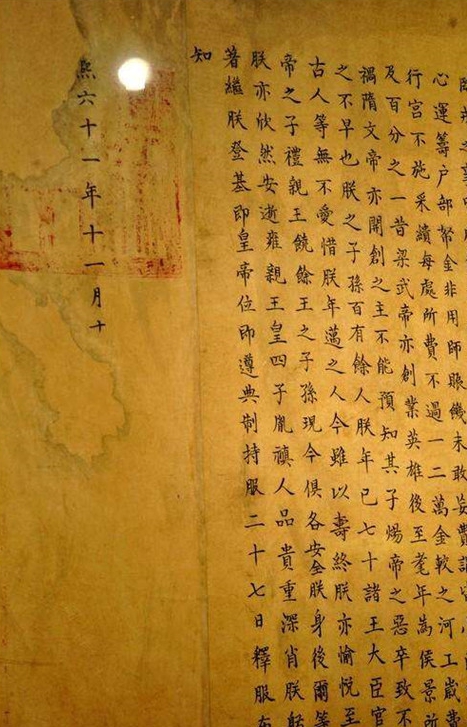 心運籌戶部帑金非用師賑饑未敢妄費謂
行宮不施采繢每處所費不過一二萬金較之河工歲費
及百分之一昔梁武帝亦創業英雄後至耄年為侯景所
禍隋文帝亦開創之主不能預知其子煬帝之惡卒致不
之不早也朕之子孫百有餘人朕年已七十諸王大臣官
古人等無不愛惜朕年邁之人今雖以壽終朕亦愉悅至
帝之子禮親王饒餘王之子孫現今俱各安全朕身後爾等
朕亦欣然安逝雍親王皇四子胤禛人品貴重深肖朕躬
著繼朕登基即皇帝位即遵典制持服二十七日釋服布
知
熙六十一年十一月十